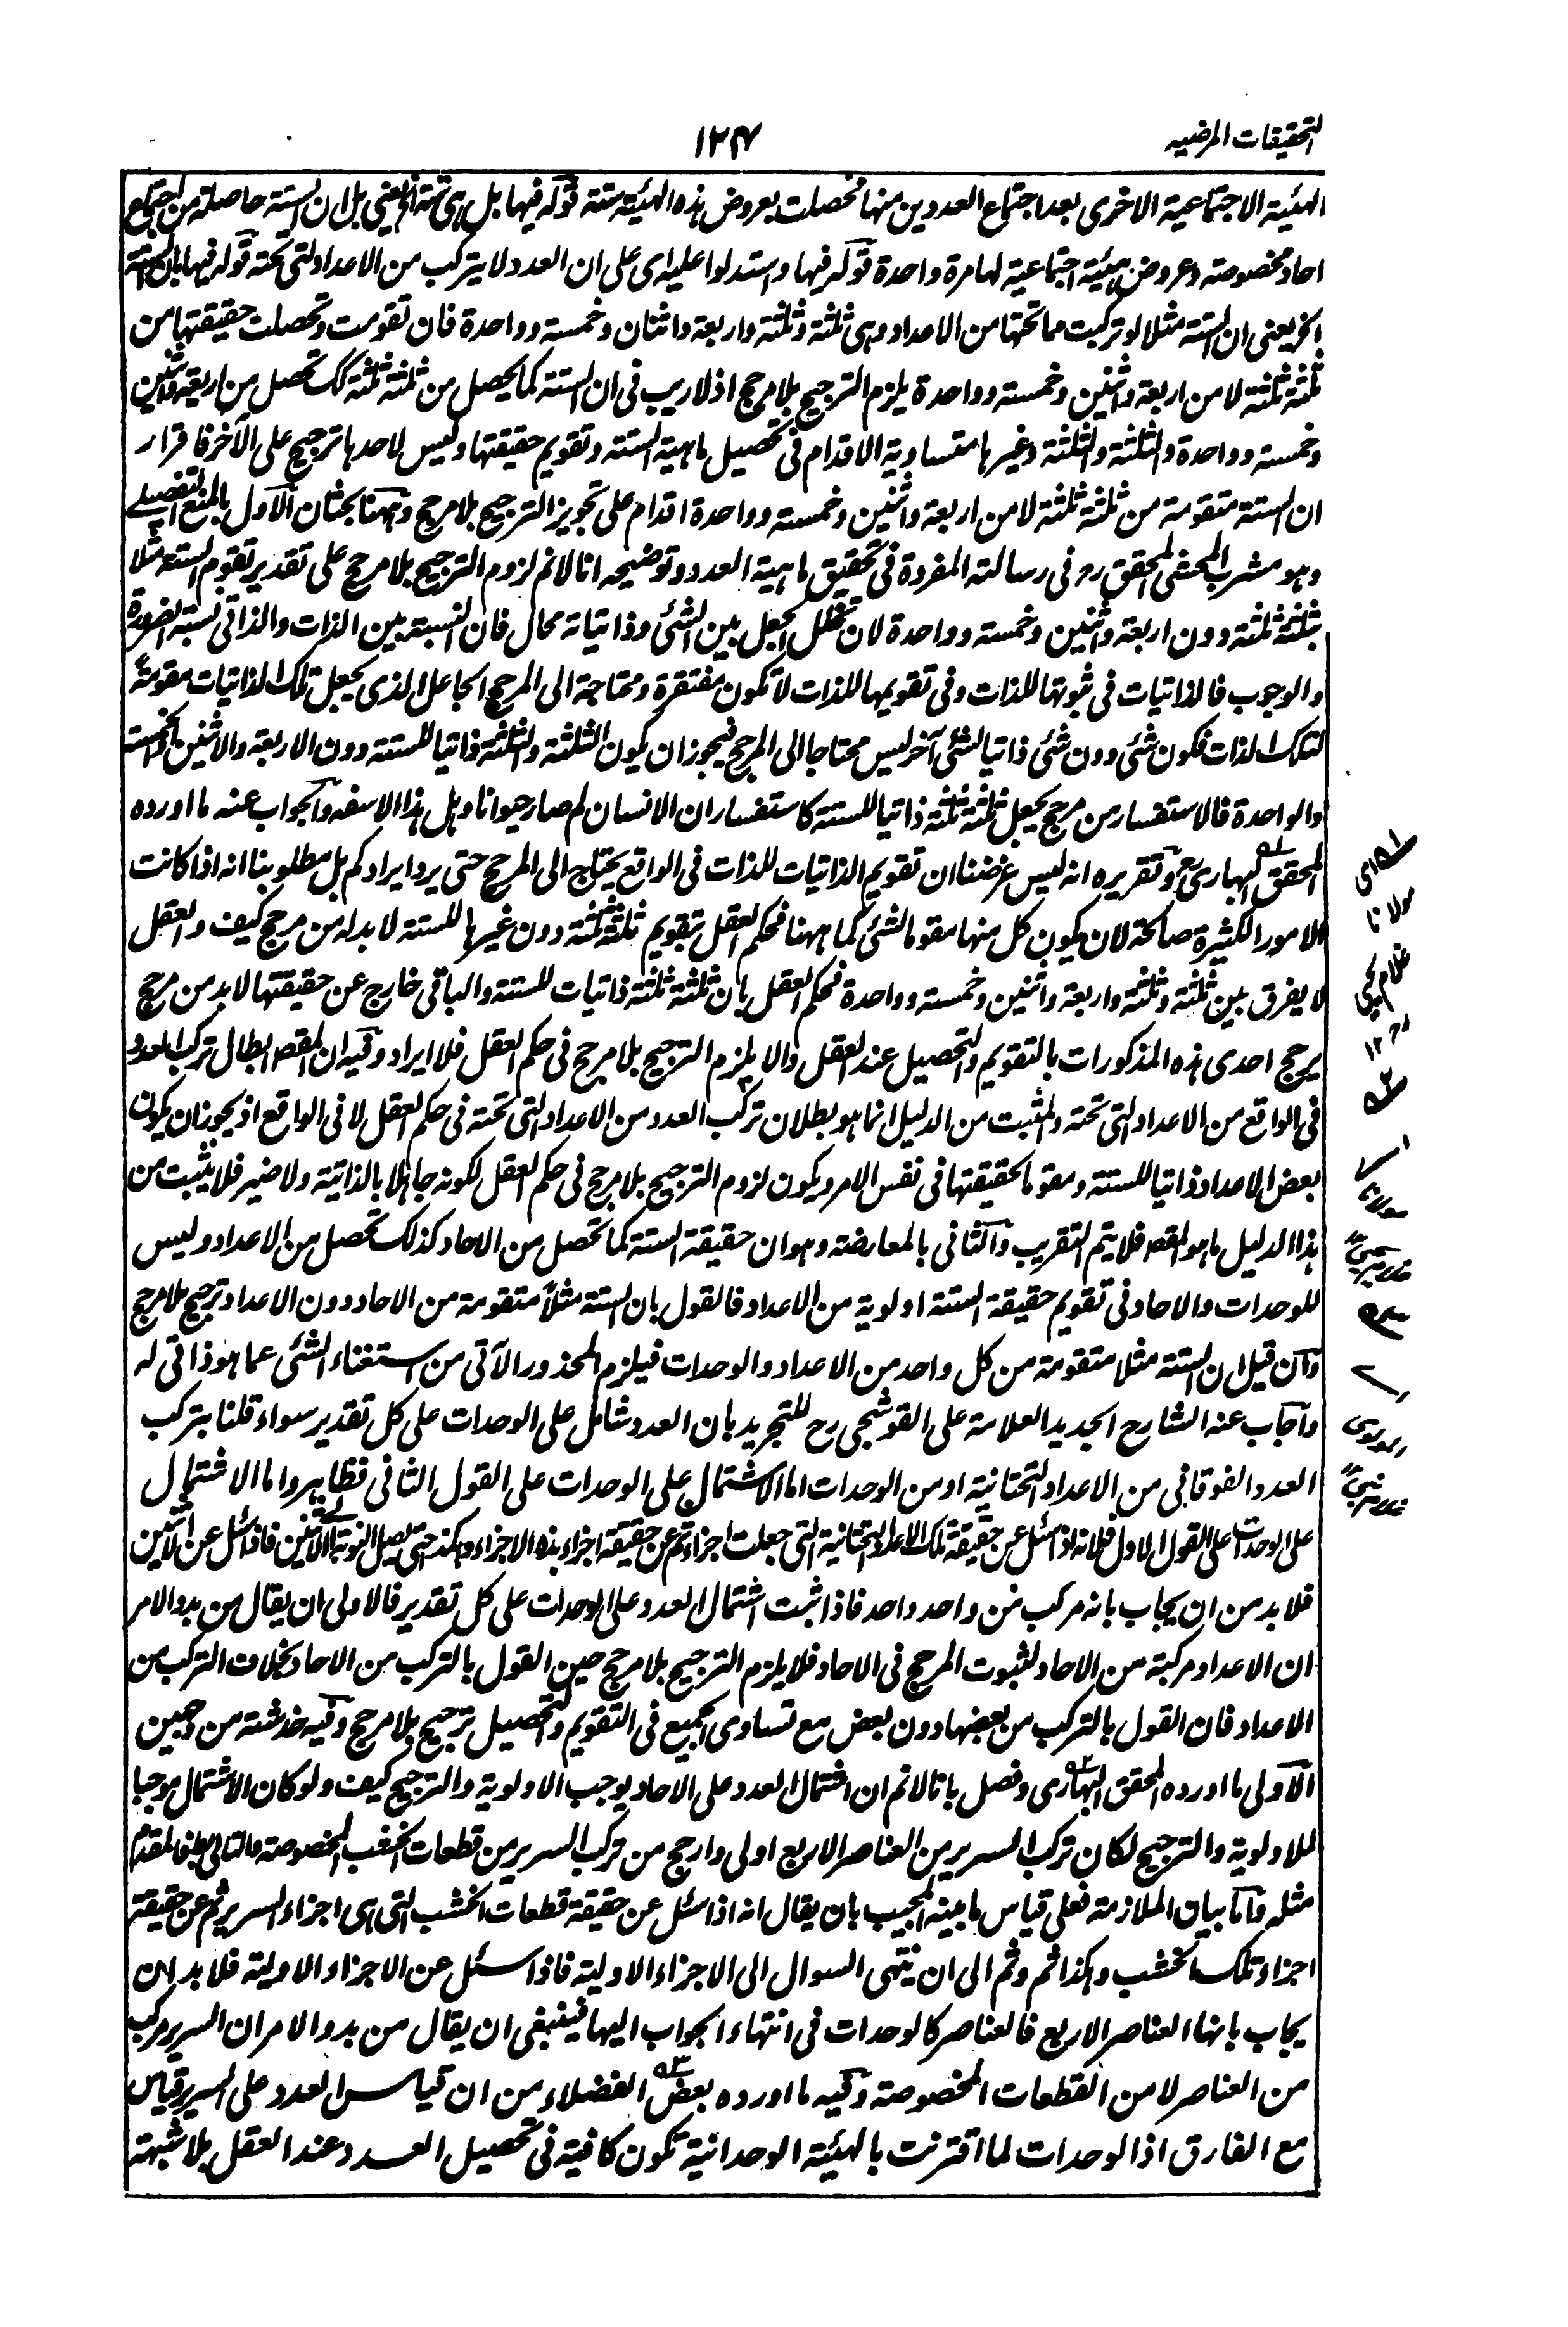 التحقيقات المرضیه
١٢٤
الهيئية الاجتماعية الاخرى بعد اجتماع العددين منها فحصلت بعروض هذه الهيئية ستة قوله فيها بل هى ستة الخ يعنى بل ان الستة حاصلة من اجتماع
احاد مخصوصة وعروض هيئية اجتماعية لها مرة واحدة قوله فيها واستدلوا عليه اى على ان العدد لا يتركب من الاعداد التى تحته قوله فيها بان الستة
الخ يعنى ان الستة مثلا لو تركبت مما تحتها من الاعداد وهى ثلثة وثلثة واربعة واثنان وخمسة وواحدة فان تقومت وتحصلت حقيقتها من
ثلثة ثلثة لا من اربعة واثنين وخمسة وواحدة يلزم الترجيح بلا مرجح اذ لا ريب فى ان الستة كما يحصل من ثلثة ثلثة كك تحصل من اربعة واثنين
وخمسة وواحدة والثلثة والثلثة وغيرها متساوية الاقدام فى تحصيل ماهية الستة وتقويم حقيقتها وليس لاحدها ترجيح على الآخر فاقرار
ان الستة متقومة من ثلثة ثلثة لا من اربعة واثنين وخمسة وواحدة اقدام على تجويز الترجيح بلا مرجح وههنا بحثان الاول بالمنع التفصيلى
وهو مشرب المحشى المحقق رح فى رسالته المفردة فى تحقيق ماهية العدد وتوضيحه انا لا نم لزوم الترجيح بلا مرجح على تقدير تقوم الستة مثلا
بثلثة ثلثة دون اربعة واثنين وخمسة وواحدة لان تخلل الجعل بين الشئ وذاتياته محال فان النسبة بين الذات والذاتى نسبة الضرورة
والوجوب فالذاتيات فى ثبوتها للذات وفى تقويمها للذات لا تكون مفتقرة ومحتاجة الى المرجح الجاعل الذى يجعل تلك الذاتيات مقومة
لتلك الذات فكون شئ دون شئ ذاتيا لشئ آخر ليس محتاجا الى المرجح فيجوز ان يكون الثلثة والثلثة ذاتيا للستة دون الاربعة والاثنين والخمسة
والواحدة فالاستفسار من مرجح يجعل ثلثة ثلثة ذاتيا للستة كاستفسار ان الانسان لم صار حيوانا وهل هذا الا سفه والجواب عنه ما اورده
المحقق البهارى رح وتقريره انه ليس غرضنا ان تقويم الذاتيات للذات فى الواقع يحتاج الى المرجح حتى يرد ايرادكم بل مطلوبنا انه اذا كانت
الامور الكثيرة صالحة لان يكون كل منها مقوما لشئ كما ههنا فحكم العقل بتقويم ثلثة ثلثة دون غيرها للستة لا بد له من مرجح كيف والعقل
لا يفرق بين ثلثة وثلثة واربعة واثنين وخمسة وواحدة فحكم العقل بان ثلثة ثلثة ذاتيات للستة والباقى خارج عن حقيقتها لا بد من مرجح
يرجح احدى هذه المذكورات بالتقويم والتحصيل عند العقل والا يلزم الترجيح بلا مرجح فى حكم العقل فلا ايراد وفيه ان المقصد ابطال تركب العدد
فى الواقع من الاعداد التى تحته والمثبت من الدليل انما هو بطلان تركب العدد من الاعداد التى تحته فى حكم العقل لا فى الواقع اذ يجوز ان يكون
بعض الاعداد ذاتيا للستة ومقوما لحقيقتها فى نفس الامر ويكون لزوم الترجيح بلا مرجح فى حكم العقل لكونه جاهلا بالذاتية ولا ضير فلا يثبت من
هذا الدليل ما هو المقصد فلا يتم التقريب والثانى بالمعارضة وهو ان حقيقة الستة كما تحصل من الاحاد كذلك تحصل من الاعداد وليس
للوحدات والاحاد فى تقويم حقيقة الستة اولوية من الاعداد فالقول بان الستة مثلا متقومة من الاحاد دون الاعداد ترجيح بلا مرجح
وان قيل ان الستة مثلا متقومة من كل واحد من الاعداد والوحدات فيلزم المحذور الآتى من استغناء الشئ عما هو ذاتى له
واجاب عنه الشارح الجديد العلامة على القوشجى رح للتجريد بان العدد شامل على الوحدات على كل تقدير سواء قلنا بتركب
العدد الفوقانى من الاعداد التحتانية او من الوحدات اما الاشتمال على الوحدات على القول الثانى فظاهر واما الاشتمال
على الوحدات على القول الاول فلانه اذا سئل عن حقيقة تلك الاعداد التحتانية التى جعلت اجزاء ثم عن حقيقة اجزاء هذه الاجزاء وهكذا حتى يصل النوبة الى الاثنين فاذا سئل عن الاثنين
فلا بد من ان يجاب بانه مركب من واحد واحد فاذا ثبت اشتمال العدد على الوحدات على كل تقدير فالاولى ان يقال من بدو الامر
ان الاعداد مركبة من الاحاد لثبوت المرجح فى الاحاد فلا يلزم الترجيح بلا مرجح حين القول بالتركب من الاحاد بخلاف التركب من
الاعداد فان القول بالتركب من بعضها دون بعض مع تساوى الجميع فى التقويم والتحصيل ترجيح بلا مرجح وفيه خدشة من وجهين
الاولى ما اورده المحقق البهارى وفصل بانا لا نم ان اشتمال العدد على الاحاد يوجب الاولوية والترجيح كيف ولو كان الاشتمال موجبا
للاولوية والترجيح لكان تركب السرير من العناصر الاربع اولى وارجح من تركب السرير من قطعات الخشب المخصوصة والتالى بط فالمقدم
مثله واما بيان الملازمة فعلى قياس ما بينه المجيب بان يقال انه اذا سئل عن حقيقة قطعات الخشب التى هى اجزاء السرير ثم عن حقيقة
اجزاء تلك الخشب وهكذا ثم وثم الى ان ينتهى السوال الى الاجزاء الاولية فاذا سئل عن الاجزاء الاولية فلا بد ان
يجاب بانها العناصر الاربع فالعناصر كالوحدات فى انتهاء الجواب اليها فينبغى ان يقال من بدو الامر ان السرير مركب
من العناصر لا من القطعات المخصوصة وفيه ما اورده بعض الفضلاء من ان قياس العدد على السرير قياس
مع الفارق اذ الوحدات لما اقترنت بالهيئية الوحدانية تكون كافية فى تحصيل العدد عند العقل بلا شبهة
مولانا
غلام يحيى
١٢
مولانا